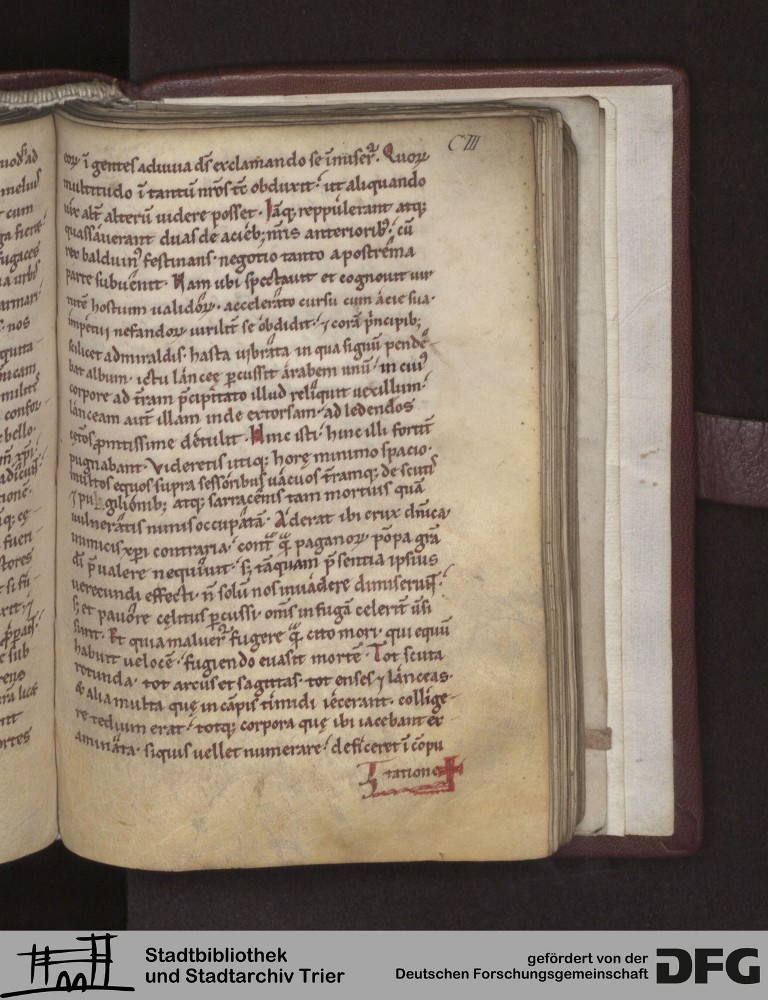 CIII
eorꝝ ĩ gentes adiuua dṡ exclamando se ĩmiser̃. Quorꝝ
multitudo ĩ tantũ nr̃os t̃c obduxit: ut aliquando
uix alt̃ alterũ uidere posset. Iãq; reppulerant atq;
quassauerant duas de acieb; nr̃is anteriorib; cũ
rex balduin᷒ festinans. negotio tanto a postrema
parte subuenit. Nam ubi spectauit et cognouit uir
tutẽ hostium validorꝝ. accelerato cursu cum acie sua.
impetui nefandorꝝ uirilit̃ se obdidit. ⁊ corã p̃ncipib;
scilicet admiraldis. hasta uibrata in qua signũ pende
bat album. ictu lanceę ꝑcussit arabem unũ. in cui᷒
corpore ad t̃ram p̃cipitato illud reliquit uexillum.
lanceam aut̃ illam inde extorsam. ad ledendos
cęt̃os promtissime detulit. Hinc isti. hinc illi fortit̃
pugnabant. Videretis utiq; horę minimo spacio.
multos equos supra sessorib; uacuos t̃ramq; de scutis
⁊ pugionib; atq; sarracenis tam mortuis quã
uulneratis nimis occupatã. Aderat ibi crux dñica
inimicis xp̃i contraria. cont̃ q̃ paganorꝝ põpa gr̃a
dĩ p̃ualere nequiuit. s; tãquam p̃sentia ipsius
uerecundi effecti. ñ solũ nos inuadere dimiserunt̃:
s; et pauore cęlitus ꝑcussi. om̃s in fugã celerit̃ ũsi
sunt. Et quia maluer̃ fugere q̃ cito mori. qui equũ
habuit velocẽ. fugiendo euasit mortẽ. Tot scuta
rotunda. tot arcus et sagittas. tot enses ⁊ lanceas.
& alia multa quę in cãpis timidi iecerant. collige
re tedium erat. totq; corpora quę ibi iacebant ex
aminata. siquis uellet numerare. deficeret ĩ cõpu
tatione
Stadtbibliothek
und Stadtarchiv Trier
gefördert von der
Deutschen Forschungsgemeinschaft
DFG